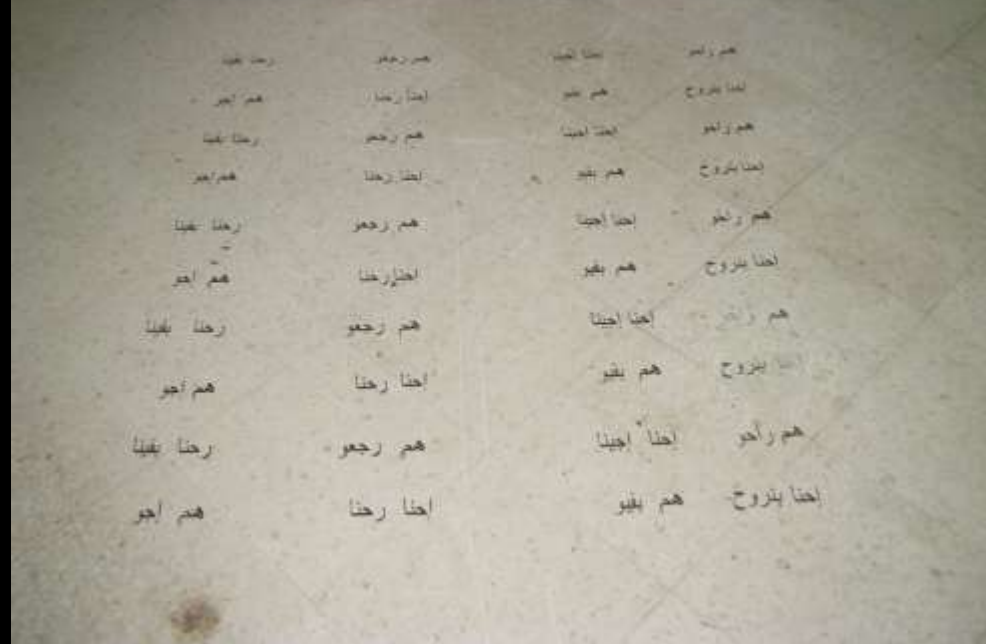 هم راحو احنا اجينا هم رجعو رحنا بقينا
احنا بنروح هم بقيو احنا رحنا هم اجو
هم راحو احنا اجينا هم رجعو رحنا بقينا
احنا بنروح هم بقيو احنا رحنا هم اجو
هم راحو احنا اجينا هم رجعو رحنا بقينا
احنا بنروح هم بقيو احنا رحنا هم اجو
هم راحو احنا اجينا هم رجعو رحنا بقينا
احنا بنروح هم بقيو احنا رحنا هم اجو
هم راحو احنا اجينا هم رجعو رحنا بقينا
احنا بنروح هم بقيو احنا رحنا هم اجو